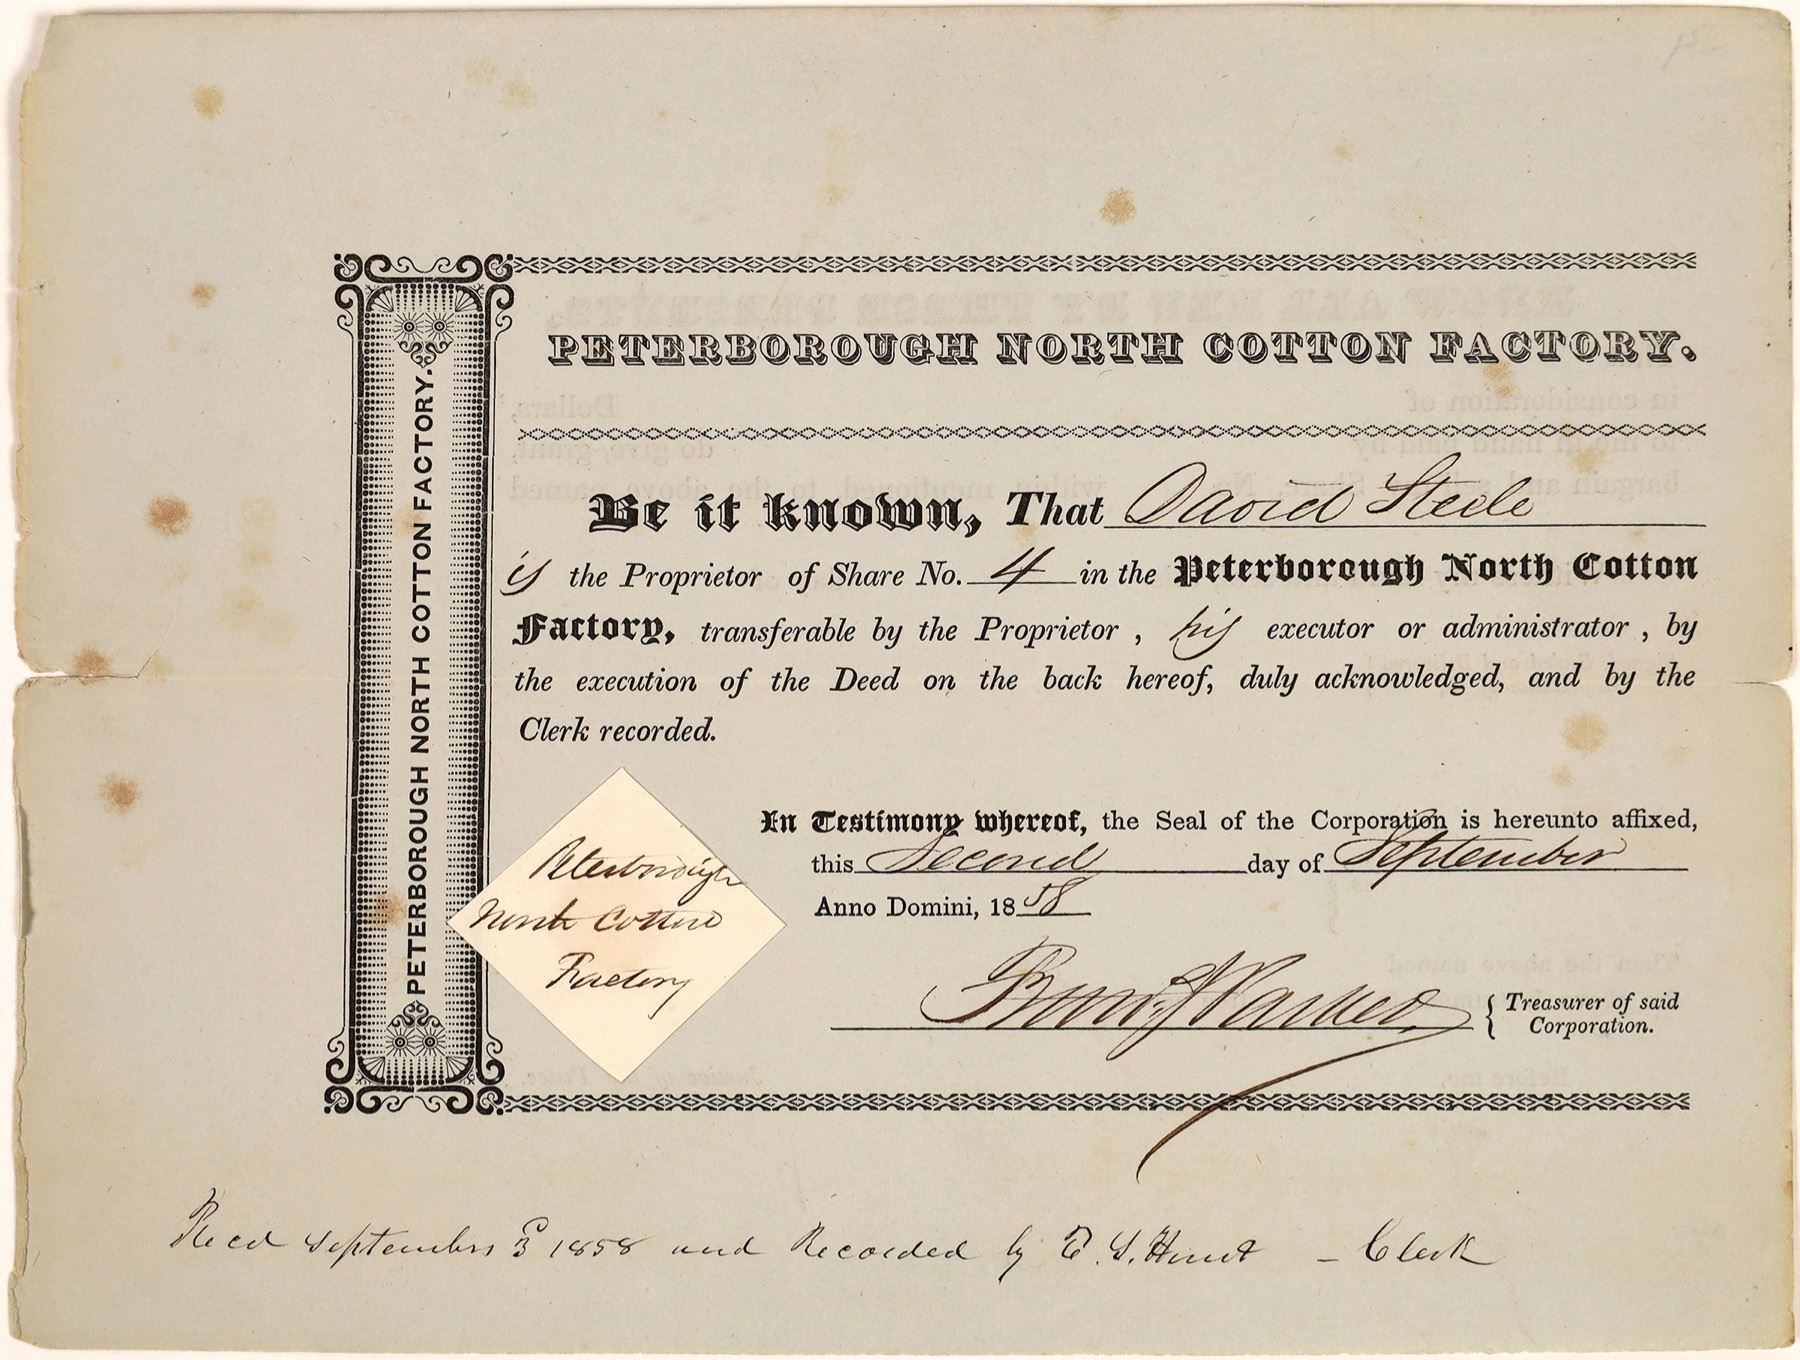 PETERBOROUGH NORTH COTTON FACTORY.
PETERBOROUGH NORTH COTTON FACTORY.
Be it known, That David Steele
is the Proprietor of Share No. 4 in the Peterborough North Cotton
Factory, transferable by the Proprietor , his executor or administrator , by
the execution of the Deed on the back hereof, duly acknowledged, and by the
Clerk recorded.
In Testimony whereof, the Seal of the Corporation is hereunto affixed,
this Second day of September
Anno Domini, 18 58
Peterborough
North Cotton
Factory
Treasurer of said
Corporation.
Recd September 3d 1858 and Recorded by S. Hunt - Clerk